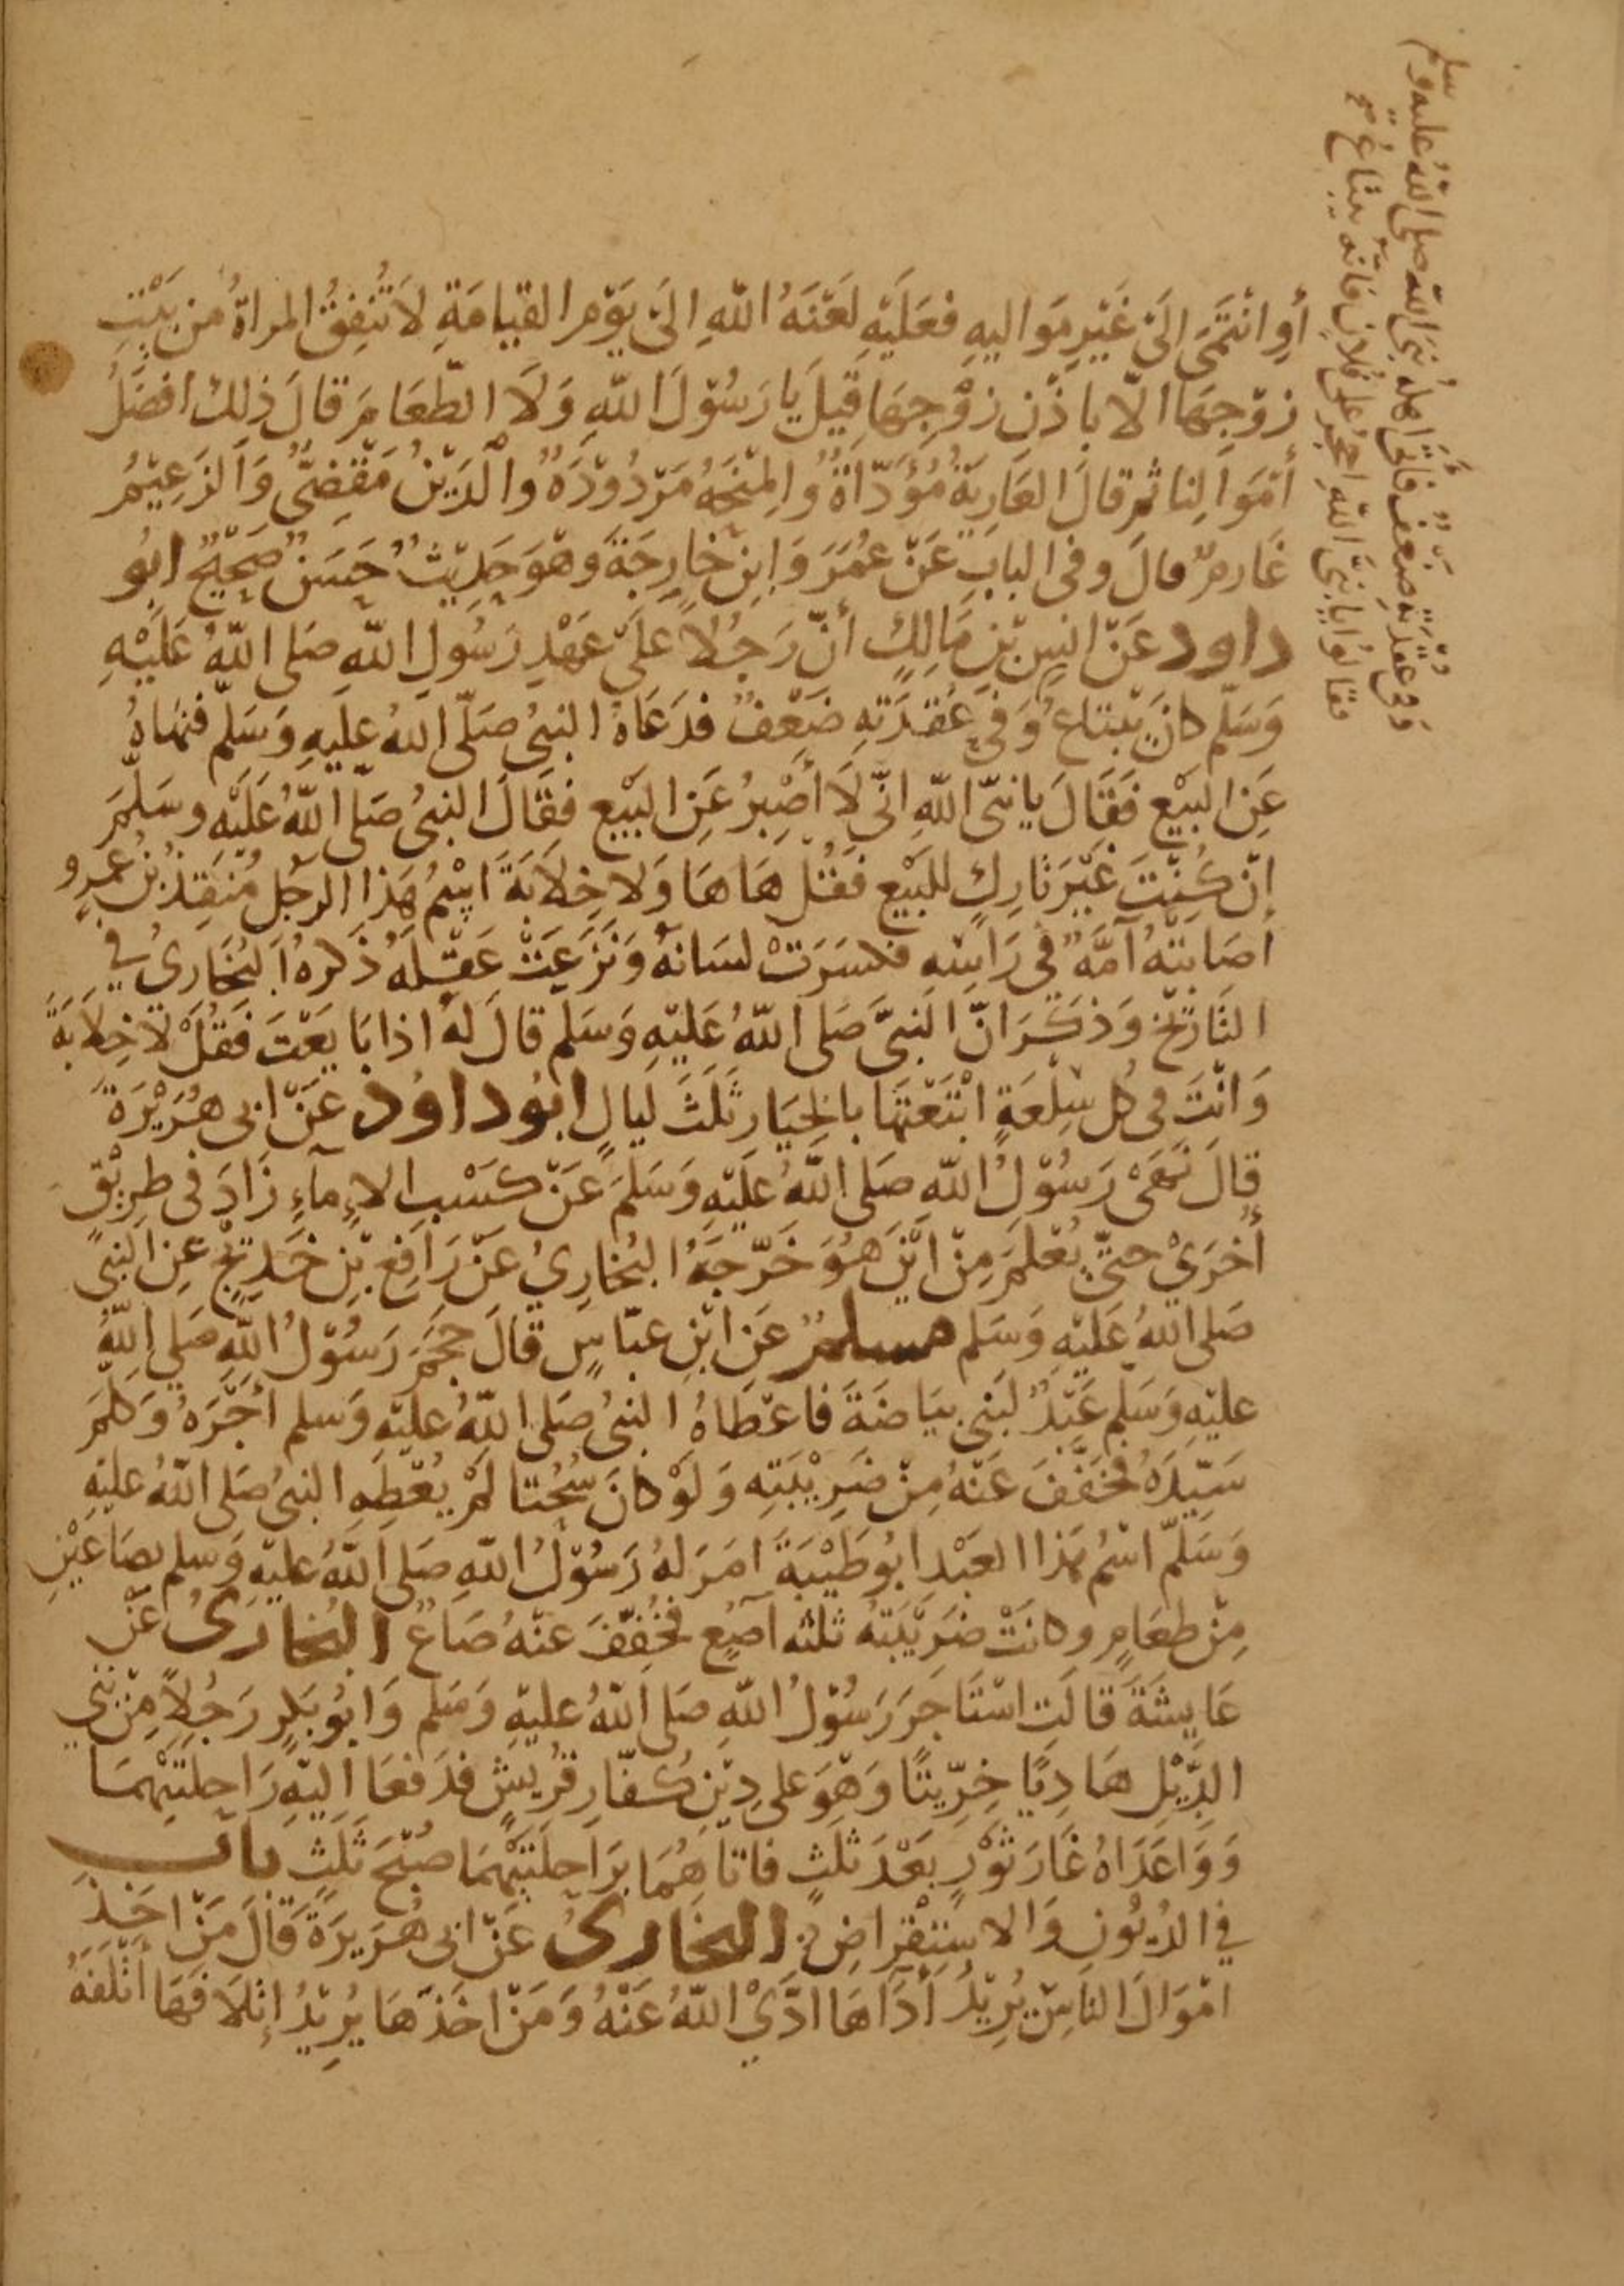 أَوِ انْتَمَى إِلَى غَيْرِ مَوَاليهِ فعَلَيْهِ لَعْنَةُ اللهِ اِلَى يَوْمِ القِيَامَةِ لاَ تُنْفِقُ المراةُ مِن بَيْتِ
زوْجِهَا الّا باذْنِ زوْجِهَا قِيلَ يَا رَسُوْلَ اللهِ وَلَا الطّعَامَ قالَ ذلِكَ افضَلُ
أمْوَالِنا ثم قالَ العَارِيَةُ مُؤَدّاةٌ وَالمِنْحَةُ مَرْدُوْدَةٌ والْدَيْنُ مَقْضِىٌّ وَالزَعِيْمُ
غَارِمٌ قالَ وفى البابِ عَنْ عُمَرَ وَابنِ خارِجَةَ وهْوَ حَدِيْثٌ حَسَنٌ صَحِيْحٌ ابُو
داود عَنْ انسِ بْنِ مَالِكٍ أنّ رَجُلاً عَلىَ عَهْدِ رَسُولِ اللهِ صَلى اللهُ عَلَيْهِ
وَسَلّم كانَ يَبْتاعُ وَفي عُقدَتِهِ ضَعْفٌ فدَعَاهُ النبىُ صَلّى اللهُ عليَهِ وَسَلّم فنهَاهُ
عَنِ البَيْعِ فَقَالَ يا نبىّ اللهِ انّي لَا أَصْبِرُ عَنِ البَيْعِ فقَالَ النبىُ صَلّى اللهُ عَلَيْهِ وسَلّمَ
اِنْ كُنْتَ غَيْرَ تارِكٍ للبَيْعِ فَقُلْ هَا هَا وَلا خِلاَبَةَ اِسْمُ هَذا الرجُلِ مُنقِذُ بْنُ عَمرٍو
أصَابَتْهُ آمَّةٌ فى رَاسِهِ فكسَرَتْ لسَانَهُ وَنَزَعَتْ عَقْلَهُ ذكَرهُ البُخَارىُ في
التَارِيْخ وَذكَرَ انّ النبىَّ صَلى اللهُ عَليْهِ وَسَلم قالَ لهُ اذا بَايَعْتَ فَقُلْ لَا خِلاَبَةَ
وَانْتَ فى كُل سِلْعَةٍ ابْتَعْتَهَا بالخِيَارِ ثَلَثَ لَيالٍ ابُو داوُد عَنْ ابى هُرَيْرَةَ
قالَ نَهَىْ رَسُوْلُ اللهِ صَلى اللهُ عَلَيْهِ وَسَلمَ عَنْ كَسْبِ الإِمآءِ زَادَ فى طرِيْقٍ
أُخرَىْ حتىّ يُعْلَمَ مِنْ ايْنَ هُوَ خَرّجَهُ البُخارِيُ عَنْ رَافِعِ بْنِ خَدِيْجٍ عَنِ النبى
صَلى اللهُ عَلَيْهِ وَسَلم مسلمٌ عَنِ ابْنِ عبّاسٍ قالَ حَجَمَ رَسُوْلَ اللهِ صَلي اللهُ
عليْهِ وَسَلم عَبْدٌ لبَنِي بيَاضَةَ فاعْطَاهُ النبىُ صَلى اللهُ عليْهِ وَسلم أجْرَهُ وَكلمَ
سَيّدَهُ فخَفّفَ عَنْهُ مِنْ ضَرِيْبَتِهِ وَلَوْ كانَ سُحْتا لَمْ يُعْطِهِ النبىُ صَلى اللهُ عليْهِ
وَسَلّم اسْمُ هَذا العَبْدِ ابُو طَيْبَةَ امَرَ لهُ رَسُوْلُ اللهِ صَلى اللهُ عليْهِ وَسلم بصَاعَيْنِ
مِنْ طعَامٍ وكانَتْ ضَرِيْبَتُهُ ثلثه آصُعٍ فخُفّفَ عنْهُ صَاعٌ البُخارىُ عَنْ
عَايشَةَ قالَت اسْتَاجَرَ رَسُوْلُ اللهِ صَلى اللهُ عليْهِ وَسَلم وَابُو بَكرٍ رَجُلاً مِنْ بَنِي
الدِّيْلِ هَادِيًا خِرِّيتًا وَهْوَ على دِيْنِ كُفّارِ قُرَيشٍ فدَفعَا اليْهِ رَاحِلتَيْهمَا
وَوَاعَدَاهُ غَارَ ثَوْرٍ بَعْدَ ثلثٍ فاتاهُمَا بَرَاحِلَتَيْهمَا صُبْحَ ثَلثٍ باب
في الدُيُونِ وَالاسْتِقْرَاضِ البخارىُ عَنْ ابى هُرَيرَةَ قَالَ مَنْ اخَذَ
امْوَالَ الناسِ يُرِيْدُ أَدَآهَا ادَّىْ اللهُ عَنْهُ وَمَنْ اخَذهَا يُرِيْدُ اِتْلاَفهَا أتْلفَهُ
وفي عقدته ضعف فاتى اهله نبى الله صلى الله عليه وسلم
فقالوا يا نبىَّ الله احجُر على فُلانٍ فانّه يبتاعُ